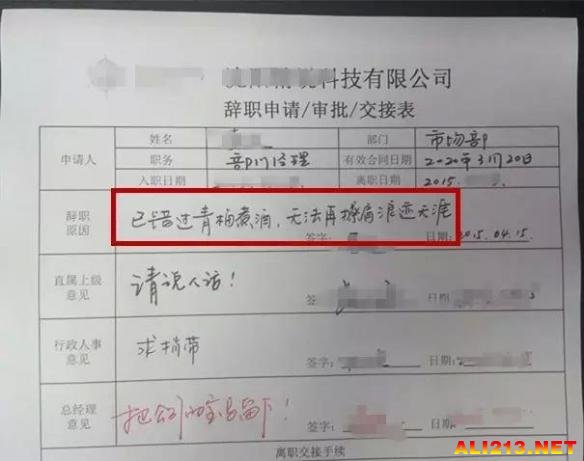 科技有限公司
辞职申请/审批/交接表
姓名 部门 市场部
申请人 职务 部门经理 有效合同日期 2020年3月20日
入职日期 离职日期 2015.
辞职 已错过青梅煮酒，无法再擦肩浪迹天涯
原因 签字: 日期: 2015.04.15
直属上级 请说人话!
意见 签 日期:
行政人事 求捎带
意见 签字: 日期:
总经理 把公司的宝马留下!
意见 签字: 日期:
离职交接手续
ALI213.NET